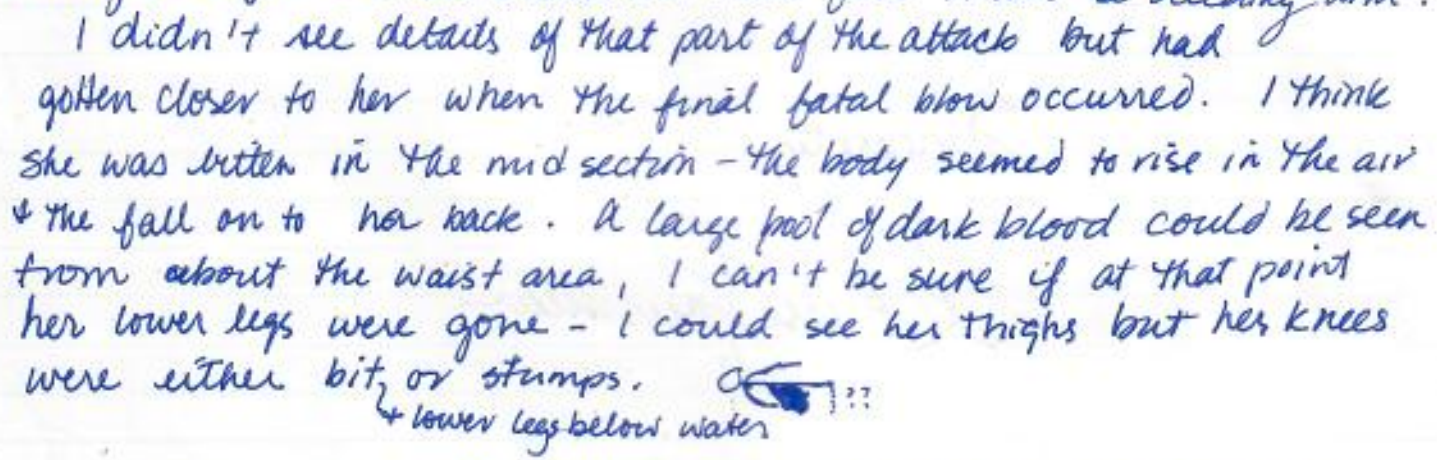 I didn't see details of that part of the attack but had
gotten closer to her when the final fatal blow occurred. I think
she was bitten in the mid section - the body seemed to rise in the air
& the fall on to her back. A large pool of dark blood could be seen
from about the waist area, I can't be sure if at that point
her lower legs were gone - I could see her thighs but her knees
were either bit, or stumps. ??
& lower legs below water